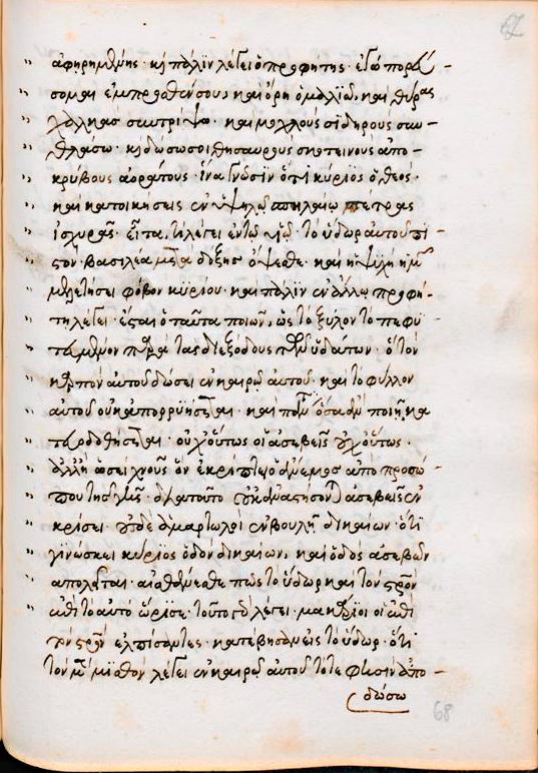 ἀφηρημένης· καὶ πάλιν λέγει ὁ προφήτης· ἐγὼ πορεύ-
σομαι ἔμπροσθέν σου καὶ ὄρη ὁμαλιῶ, καὶ θύρας
χαλκᾶς συντρίψω· καὶ μοχλοὺς σιδηροὺς συν-
θλάσω· καὶ δώσω σοι θησαυροὺς σκοτεινοὺς ἀπο-
κρύφους ἀοράτους· ἵνα γνῶσιν ὅτι κύριος ὁ θεός·
καὶ κατοικήσεις ἐν ὑψηλῷ σπηλαίῳ πέτρας
ἰσχυρᾶς· εἶτα, τί λέγει ἐν τῷ υἱῷ· τὸ ὕδωρ αὐτοῦ πι-
στόν· βασιλέα μετὰ δόξης ὄψεσθε· καὶ ἡ ψυχὴ ἡμῶν
μελετήσει φόβον κυρίου· καὶ πάλιν ἐν ἄλλῳ προφή-
τῃ λέγει· ἔσται ὁ ταῦτα ποιῶν, ὡς τὸ ξύλον τὸ πεφυ
τευμένον παρὰ τὰς διεξόδους τῶν ὑδάτων· ὃ τὸν
καρπὸν αὐτοῦ δώσει ἐν καιρῷ αὐτοῦ· καὶ τὸ φύλλον
αὐτοῦ οὐκ ἀπορρυήσεται· καὶ πάντα ὅσα ἂν ποιῇ κα
τευοδωθήσεται· οὐχ οὕτως οἱ ἀσεβεῖς οὐχ οὕτως·
ἀλλ' ἢ ὡσεὶ χνοῦς ὃν ἐκρίπτει ὁ ἄνεμος ἀπὸ προσώ-
που τῆς γῆς· διὰ τοῦτο οὐκ ἀναστήσονται ἀσεβεῖς ἐν
κρίσει· οὐδὲ ἁμαρτωλοὶ ἐν βουλῇ δικαίων· ὅτι
γινώσκει κύριος ὁδὸν δικαίων, καὶ ὁδὸς ἀσεβῶν
ἀπολεῖται· αἰσθάνεσθε πῶς τὸ ὕδωρ καὶ τὸν σταυρὸν
ἐπὶ τὸ αὐτὸ ὥρισε· τοῦτο γὰρ λέγει· μακάριοι οἱ ἐπὶ
τὸν σταυρὸν ἐλπίσαντες· κατέβησαν εἰς τὸ ὕδωρ· ὅτι
τὸν μὲν μισθὸν λέγει ἐν καιρῷ αὐτοῦ τότε φησὶν ἀπο-
δώσω
68